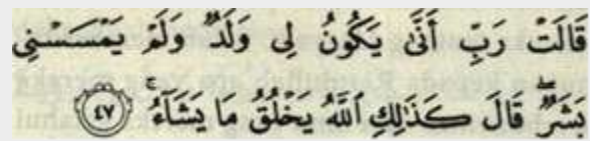 قَالَتْ رَبِّ أَنَّىٰ يَكُونُ لِى وَلَدٌ وَلَمْ يَمْسَسْنِى
بَشَرٌ ۖ قَالَ كَذَٰلِكِ ٱللَّهُ يَخْلُقُ مَا يَشَآءُ ۚ ٤٧